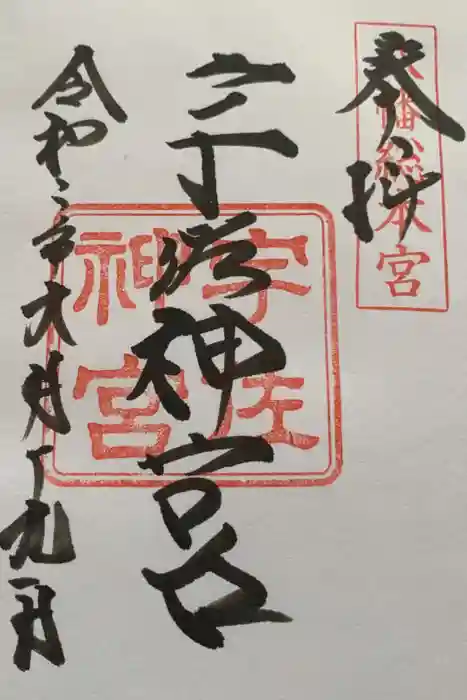 奉拝
八幡総本宮
宇佐神宮
宇佐神宮
令和 年六月十九日